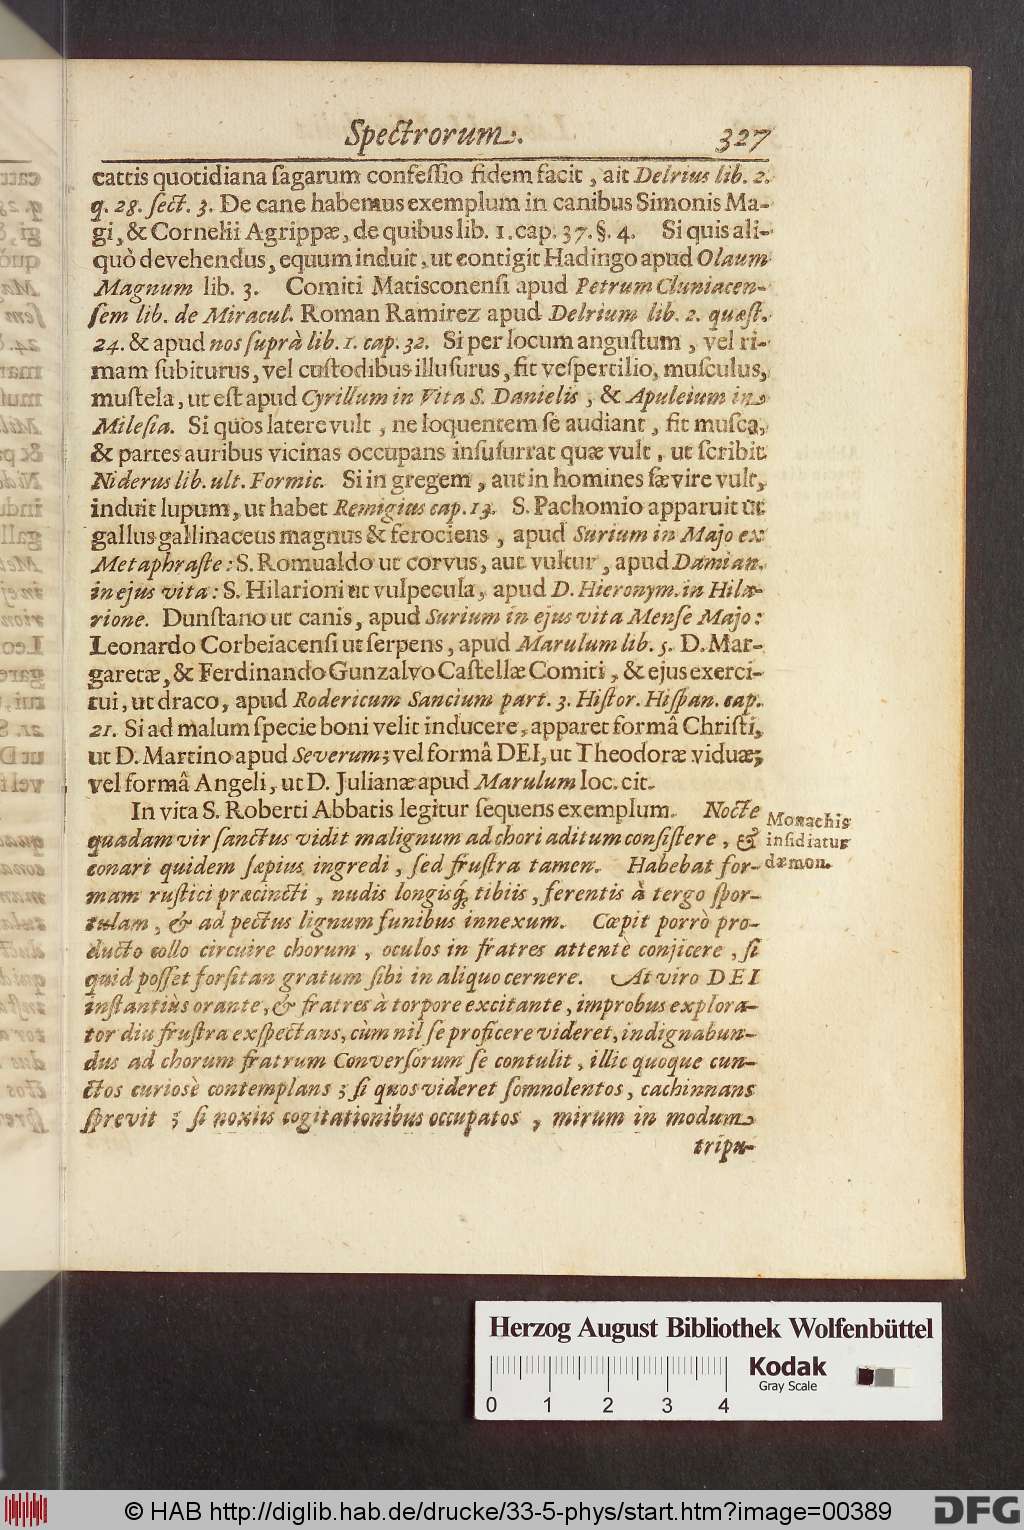 Spectrorum. 327
cattis quotidiana ſagarum confeſſio fidem facit, ait Delrius lib. 2.
q. 28. ſect. 3. De cane habemus exemplum in canibus Simonis Ma-
gi, & Cornelii Agrippæ, de quibus lib. 1. cap. 37. §. 4. Si quis ali-
quò devehendus, equum induit, ut contigit Hadingo apud Olaum
Magnum lib. 3. Comiti Matisconenſi apud Petrum Cluniacen-
ſem lib. de Miracul. Roman Ramirez apud Delrium lib. 2. quæſt.
24. & apud nos ſuprà lib. 1. cap. 32. Si per locum anguſtum, vel ri-
mam ſubiturus, vel cuſtodibus illuſurus, fit veſpertilio, muſculus,
muſtela, ut eſt apud Cyrillum in Vita S. Danielis, & Apuleium in
Mileſia. Si quos latere vult, ne loquentem ſe audiant, fit muſca,
& partes auribus vicinas occupans inſuſurrat quæ vult, ut ſcribit
Niderus lib. ult. Formic. Si in gregem, aut in homines ſævire vult,
induit lupum, ut habet Remigius cap. 13. S. Pachomio apparuit ut
gallus gallinaceus magnus & ferociens, apud Surium in Majo ex
Metaphraſte: S. Romualdo ut corvus, aut vultur, apud Damian.
in ejus vita: S. Hilarioni ut vulpecula, apud D. Hieronym. in Hila-
rione. Dunſtano ut canis, apud Surium in ejus vita Menſe Majo:
Leonardo Corbeiacenſi ut ſerpens, apud Marulum lib. 5. D. Mar-
garetæ, & Ferdinando Gunzalvo Caſtellæ Comiti, & ejus exerci-
tui, ut draco, apud Rodericum Sancium part. 3. Hiſtor. Hiſpan. cap.
21. Si ad malum ſpecie boni velit inducere, apparet formâ Chriſti,
ut D. Martino apud Severum; vel formâ DEI, ut Theodoræ viduæ;
vel formâ Angeli, ut D. Julianæ apud Marulum loc. cit.
In vita S. Roberti Abbatis legitur ſequens exemplum. Nocte
quadam vir ſanctus vidit malignum ad chori aditum conſiſtere, &
conari quidem ſæpius ingredi, ſed fruſtra tamen. Habebat for-
mam ruſtici præcincti, nudis longisq́; tibiis, ferentis à tergo ſpor-
tulam, & ad pectus lignum funibus innexum. Cœpit porrò pro-
ducto collo circuire chorum, oculos in fratres attentè conjicere, ſi
quid poſſet forſitan gratum ſibi in aliquo cernere. At viro DEI
inſtantiùs orante, & fratres à torpore excitante, improbus explora-
tor diu fruſtra exſpectans, cùm nil ſe proficere videret, indignabun-
dus ad chorum fratrum Converſorum ſe contulit, illic quoque cun-
ctos curioſè contemplans; ſi quos videret ſomnolentos, cachinnans
ſprevit; ſi noxiis cogitationibus occupatos, mirum in modum
tripu-
Monachis
inſidiatur
dæmon.
Herzog August Bibliothek Wolfenbüttel
Kodak
Gray Scale
0 1 2 3 4
© HAB http://diglib.hab.de/drucke/33-5-phys/start.htm?image=00389
DFG